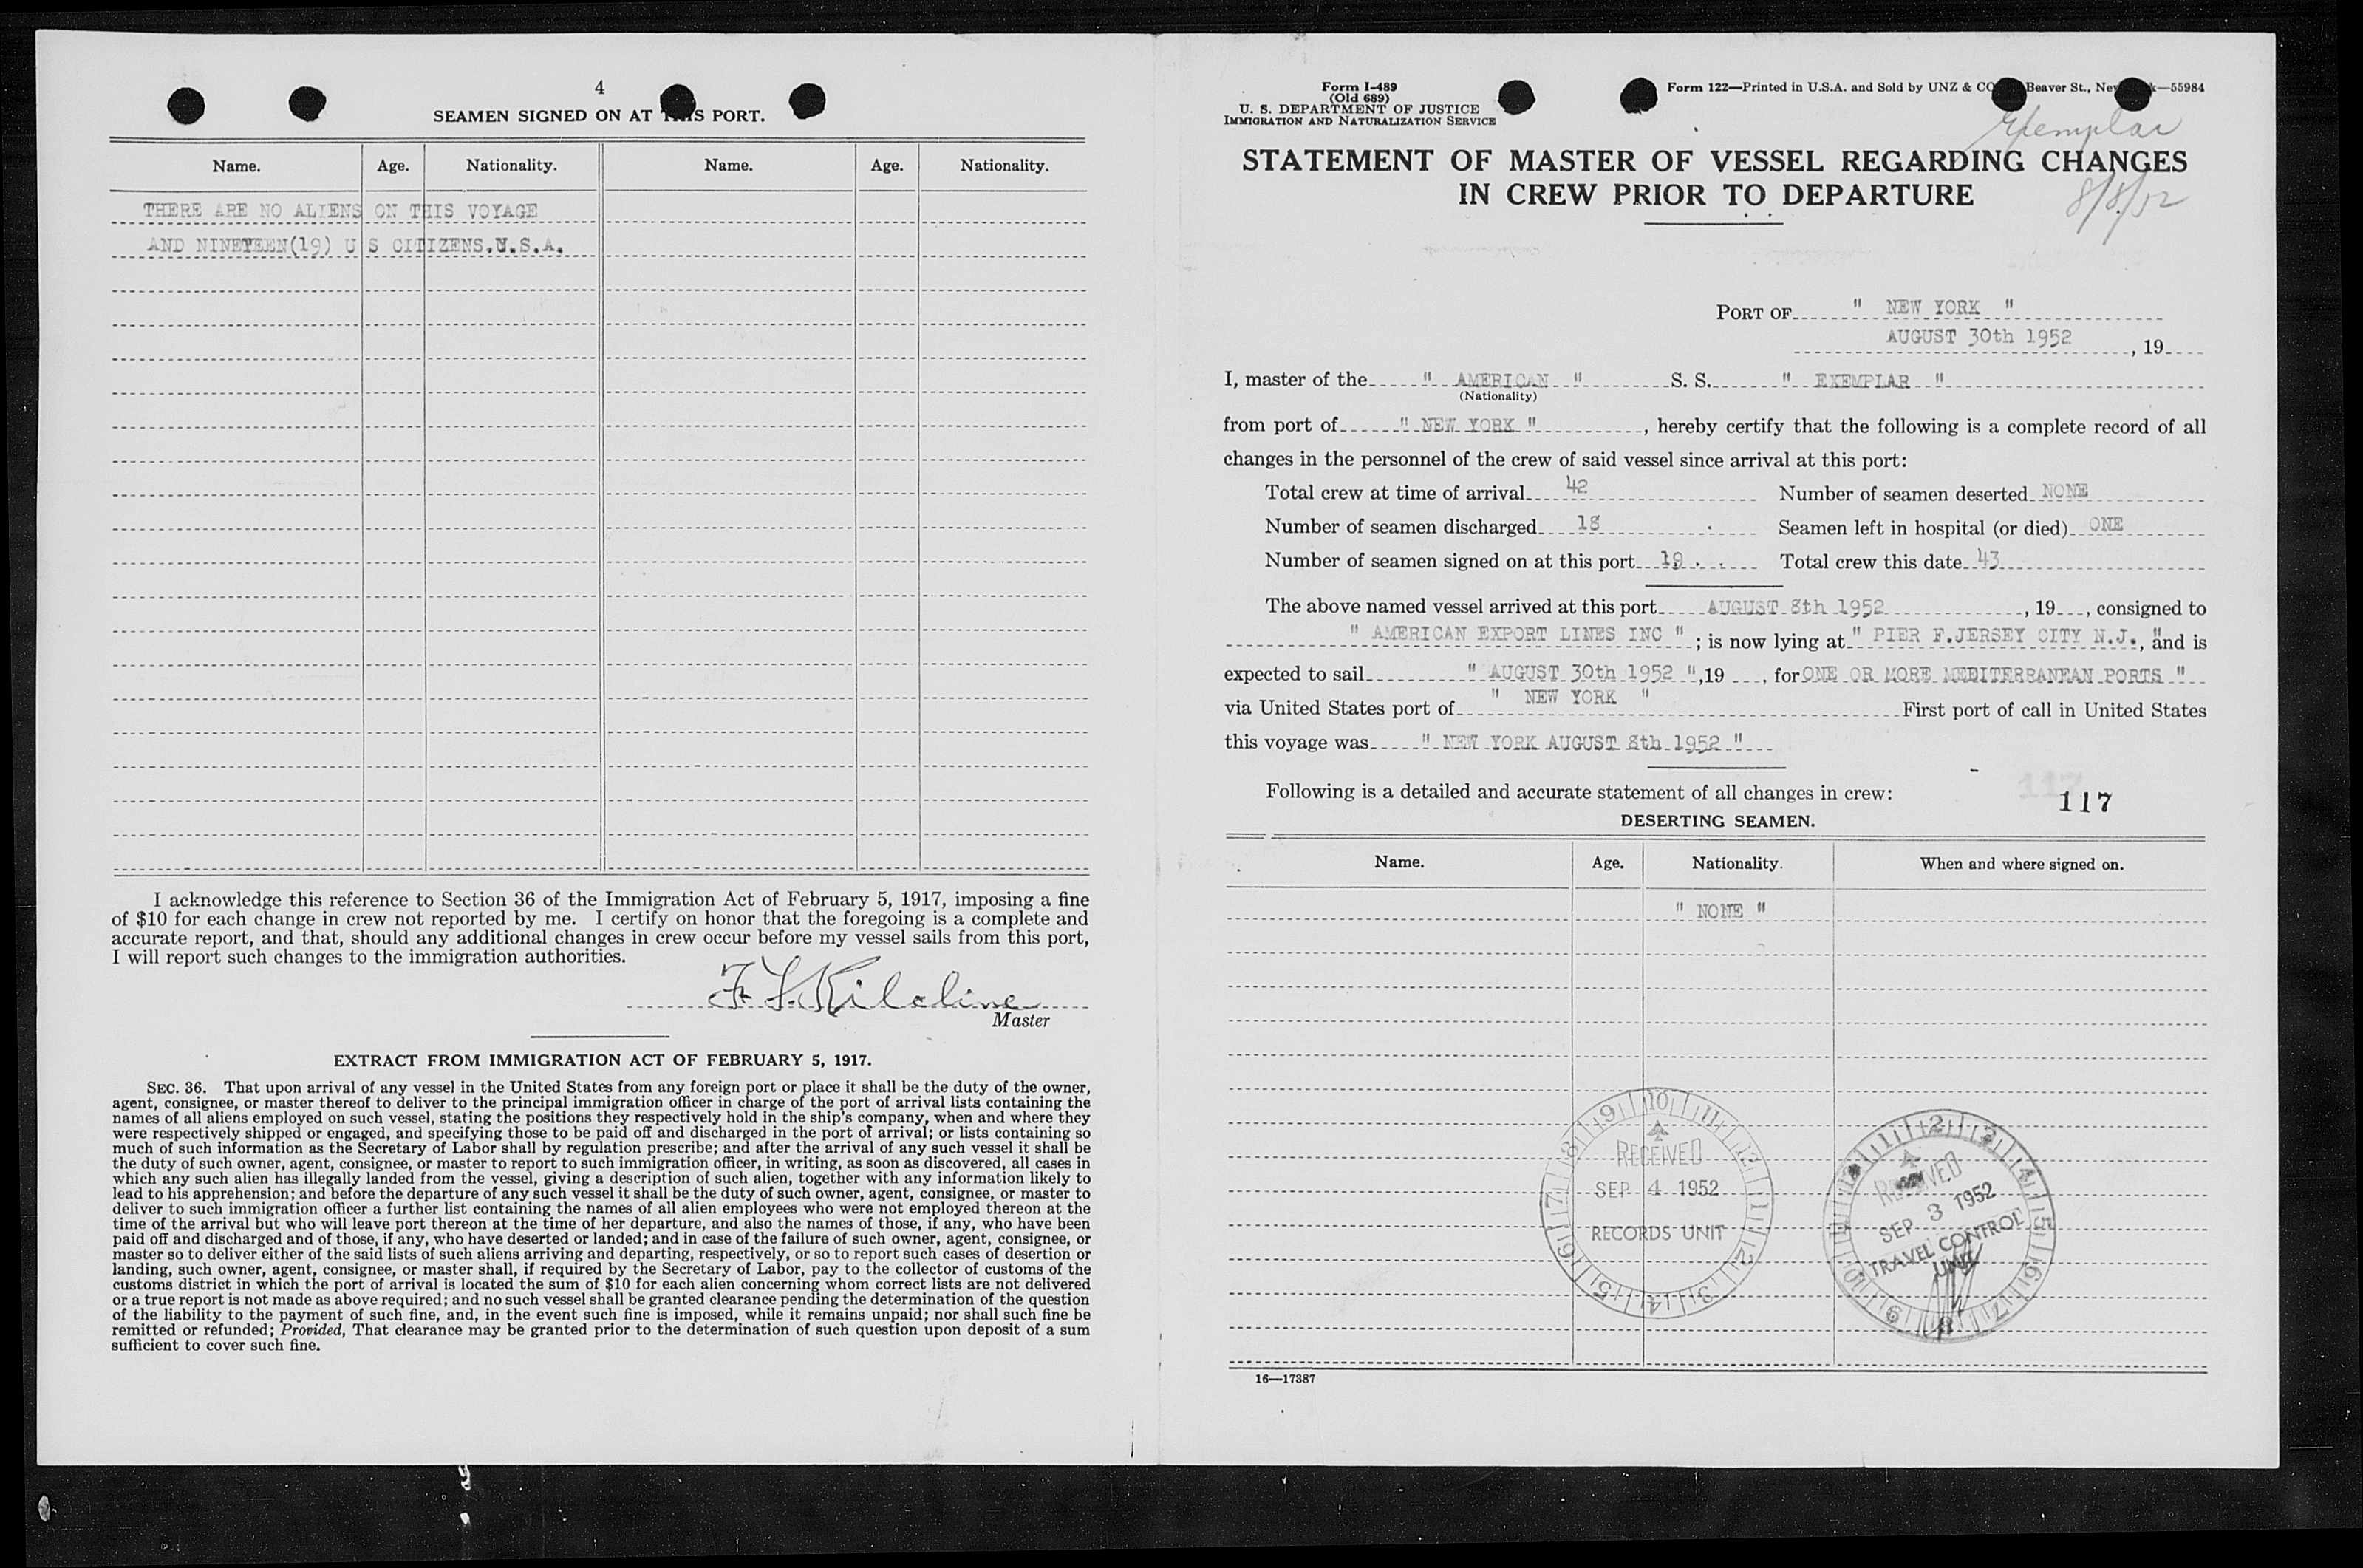 4
SEAMEN SIGNED ON AT THIS PORT.
Name. Age. Nationality. Name. Age. Nationality.
THERE ARE NO ALIENS ON THIS VOYAGE
AND NINETEEN(19) U S CITIZENS.U.S.A.
I acknowledge this reference to Section 36 of the Immigration Act of February 5, 1917, imposing a fine
of $10 for each change in crew not reported by me. I certify on honor that the foregoing is a complete and
accurate report, and that, should any additional changes in crew occur before my vessel sails from this port,
I will report such changes to the immigration authorities.
Master
EXTRACT FROM IMMIGRATION ACT OF FEBRUARY 5, 1917.
SEC. 36. That upon arrival of any vessel in the United States from any foreign port or place it shall be the duty of the owner,
agent, consignee, or master thereof to deliver to the principal immigration officer in charge of the port of arrival lists containing the
names of all aliens employed on such vessel, stating the positions they respectively hold in the ship's company, when and where they
were respectively shipped or engaged, and specifying those to be paid off and discharged in the port of arrival; or lists containing so
much of such information as the Secretary of Labor shall by regulation prescribe; and after the arrival of any such vessel it shall be
the duty of such owner, agent, consignee, or master to report to such immigration officer, in writing, as soon as discovered, all cases in
which any such alien has illegally landed from the vessel, giving a description of such alien, together with any information likely to
lead to his apprehension; and before the departure of any such vessel it shall be the duty of such owner, agent, consignee, or master to
deliver to such immigration officer a further list containing the names of all alien employees who were not employed thereon at the
time of the arrival but who will leave port thereon at the time of her departure, and also the names of those, if any, who have been
paid off and discharged and of those, if any, who have deserted or landed; and in case of the failure of such owner, agent, consignee, or
master so to deliver either of the said lists of such aliens arriving and departing, respectively, or so to report such cases of desertion or
landing, such owner, agent, consignee, or master shall, if required by the Secretary of Labor, pay to the collector of customs of the
customs district in which the port of arrival is located the sum of $10 for each alien concerning whom correct lists are not delivered
or a true report is not made as above required; and no such vessel shall be granted clearance pending the determination of the question
of the liability to the payment of such fine, and, in the event such fine is imposed, while it remains unpaid; nor shall such fine be
remitted or refunded; Provided, That clearance may be granted prior to the determination of such question upon deposit of a sum
sufficient to cover such fine.
Form I-489
(Old 689)
U. S. DEPARTMENT OF JUSTICE
IMMIGRATION AND NATURALIZATION SERVICE
Form 122—Printed in U.S.A. and Sold by UNZ & CO Beaver St., New —55984
Exemplar
STATEMENT OF MASTER OF VESSEL REGARDING CHANGES
IN CREW PRIOR TO DEPARTURE
8/8/52
PORT OF " NEW YORK "
AUGUST 30th 1952 , 19
I, master of the " AMERICAN " S. S. " EXEMPLAR "
(Nationality)
from port of " NEW YORK " , hereby certify that the following is a complete record of all
changes in the personnel of the crew of said vessel since arrival at this port:
Total crew at time of arrival 42 Number of seamen deserted NONE
Number of seamen discharged 18 Seamen left in hospital (or died) ONE
Number of seamen signed on at this port 19 Total crew this date 43
The above named vessel arrived at this port AUGUST 8th 1952 , 19 , consigned to
" AMERICAN EXPORT LINES INC " ; is now lying at " PIER F.JERSEY CITY N.J., " and is
expected to sail " AUGUST 30th 1952 ",19 , for ONE OR MORE MEDITERRANEAN PORTS "
via United States port of " NEW YORK " First port of call in United States
this voyage was " NEW YORK AUGUST 8th 1952 "
Following is a detailed and accurate statement of all changes in crew:
117
DESERTING SEAMEN.
Name. Age. Nationality. When and where signed on.
" NONE "
RECEIVED
SEP 4 1952
RECORDS UNIT
RECEIVED
SEP 3 1952
TRAVEL CONTROL
UNIT
16—17387